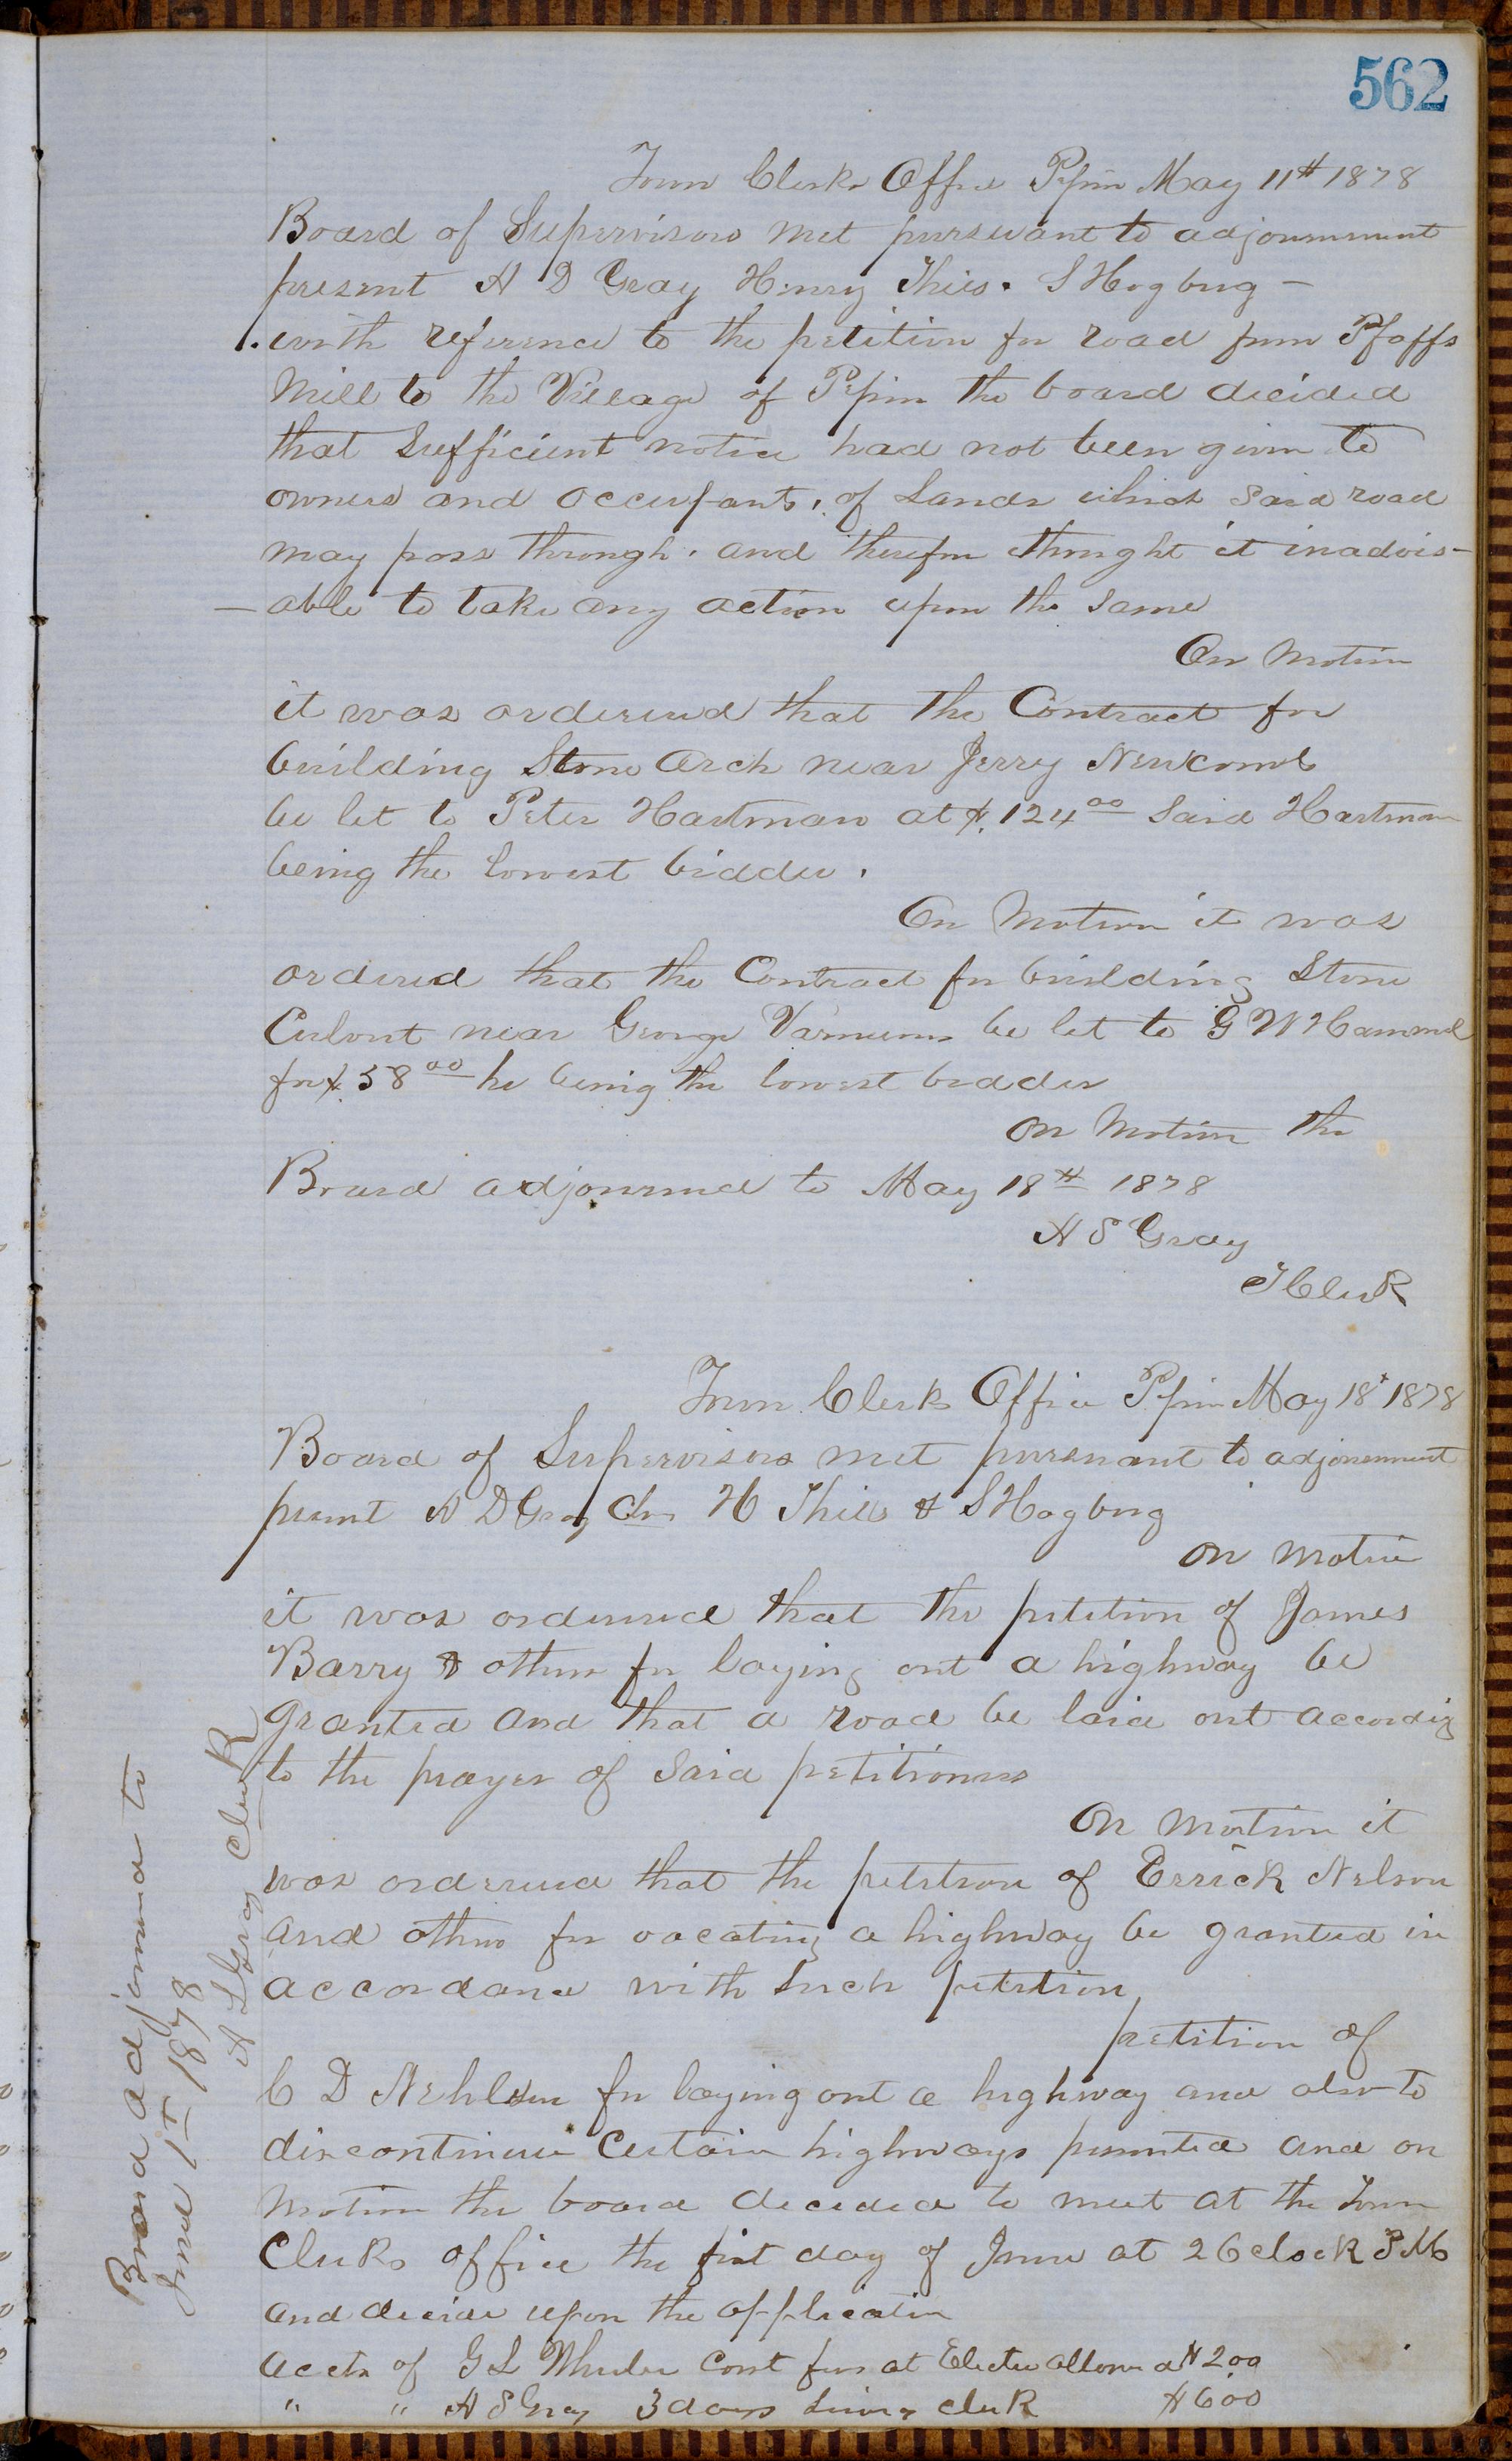 562
Town Clerks Office Pepin May 11th 1878
Board of Supervisors met pursuant to adjournment
present A D Gray Henry Thies. S Hogberg -
with reference to the petition for road from Pfaffs
Mill to the Village of Pepin the board decided
that Sufficient notice had not been given to
owners and occupants, of Lands which said road
may pass through. and therefor thought it inadvis-
-able to take any action upon the same
On Motion
it was ordered that the Contract for
building Stone Arch near Jerry Newcomb
be let to Peter Hartman at $.124 00 Said Hartman
being the lowest bidder.
On Motion it was
ordered that the Contract for building Stone
Culvert near George Varnums be let to G W Hammel
for $.58 00 he being the lowest bidder
On Motion the
Board adjourned to May 18th 1878
A S Gray
T Clerk
Town Clerks Office Pepin May 18t 1878
Board of Supervisors met pursuant to adjournment
present A D Gray Chn H Thies & S Hogberg
On Motion
it was ordered that the petition of James
Barry & others for laying out a highway be
granted and that a road be laid out according
to the prayer of said petitioners
On Motion it
was ordered that the petition of Errick Nelson
and others for vacating a highway be granted in
accordance with such petition
petition of
C D Nehlsen for laying out a highway and also to
discontinue Certain highways presented and on
Motion the board decided to meet at the Town
Clerks office the first day of June at 2 Oclock P M
and decide upon the application
Accts of G L Wheeler Const fees at Election allowed at $2.00
" " A S Gray 3 days Services Clerk $6 00
Board adjourned to
June 1st 1878
A S Gray Clerk